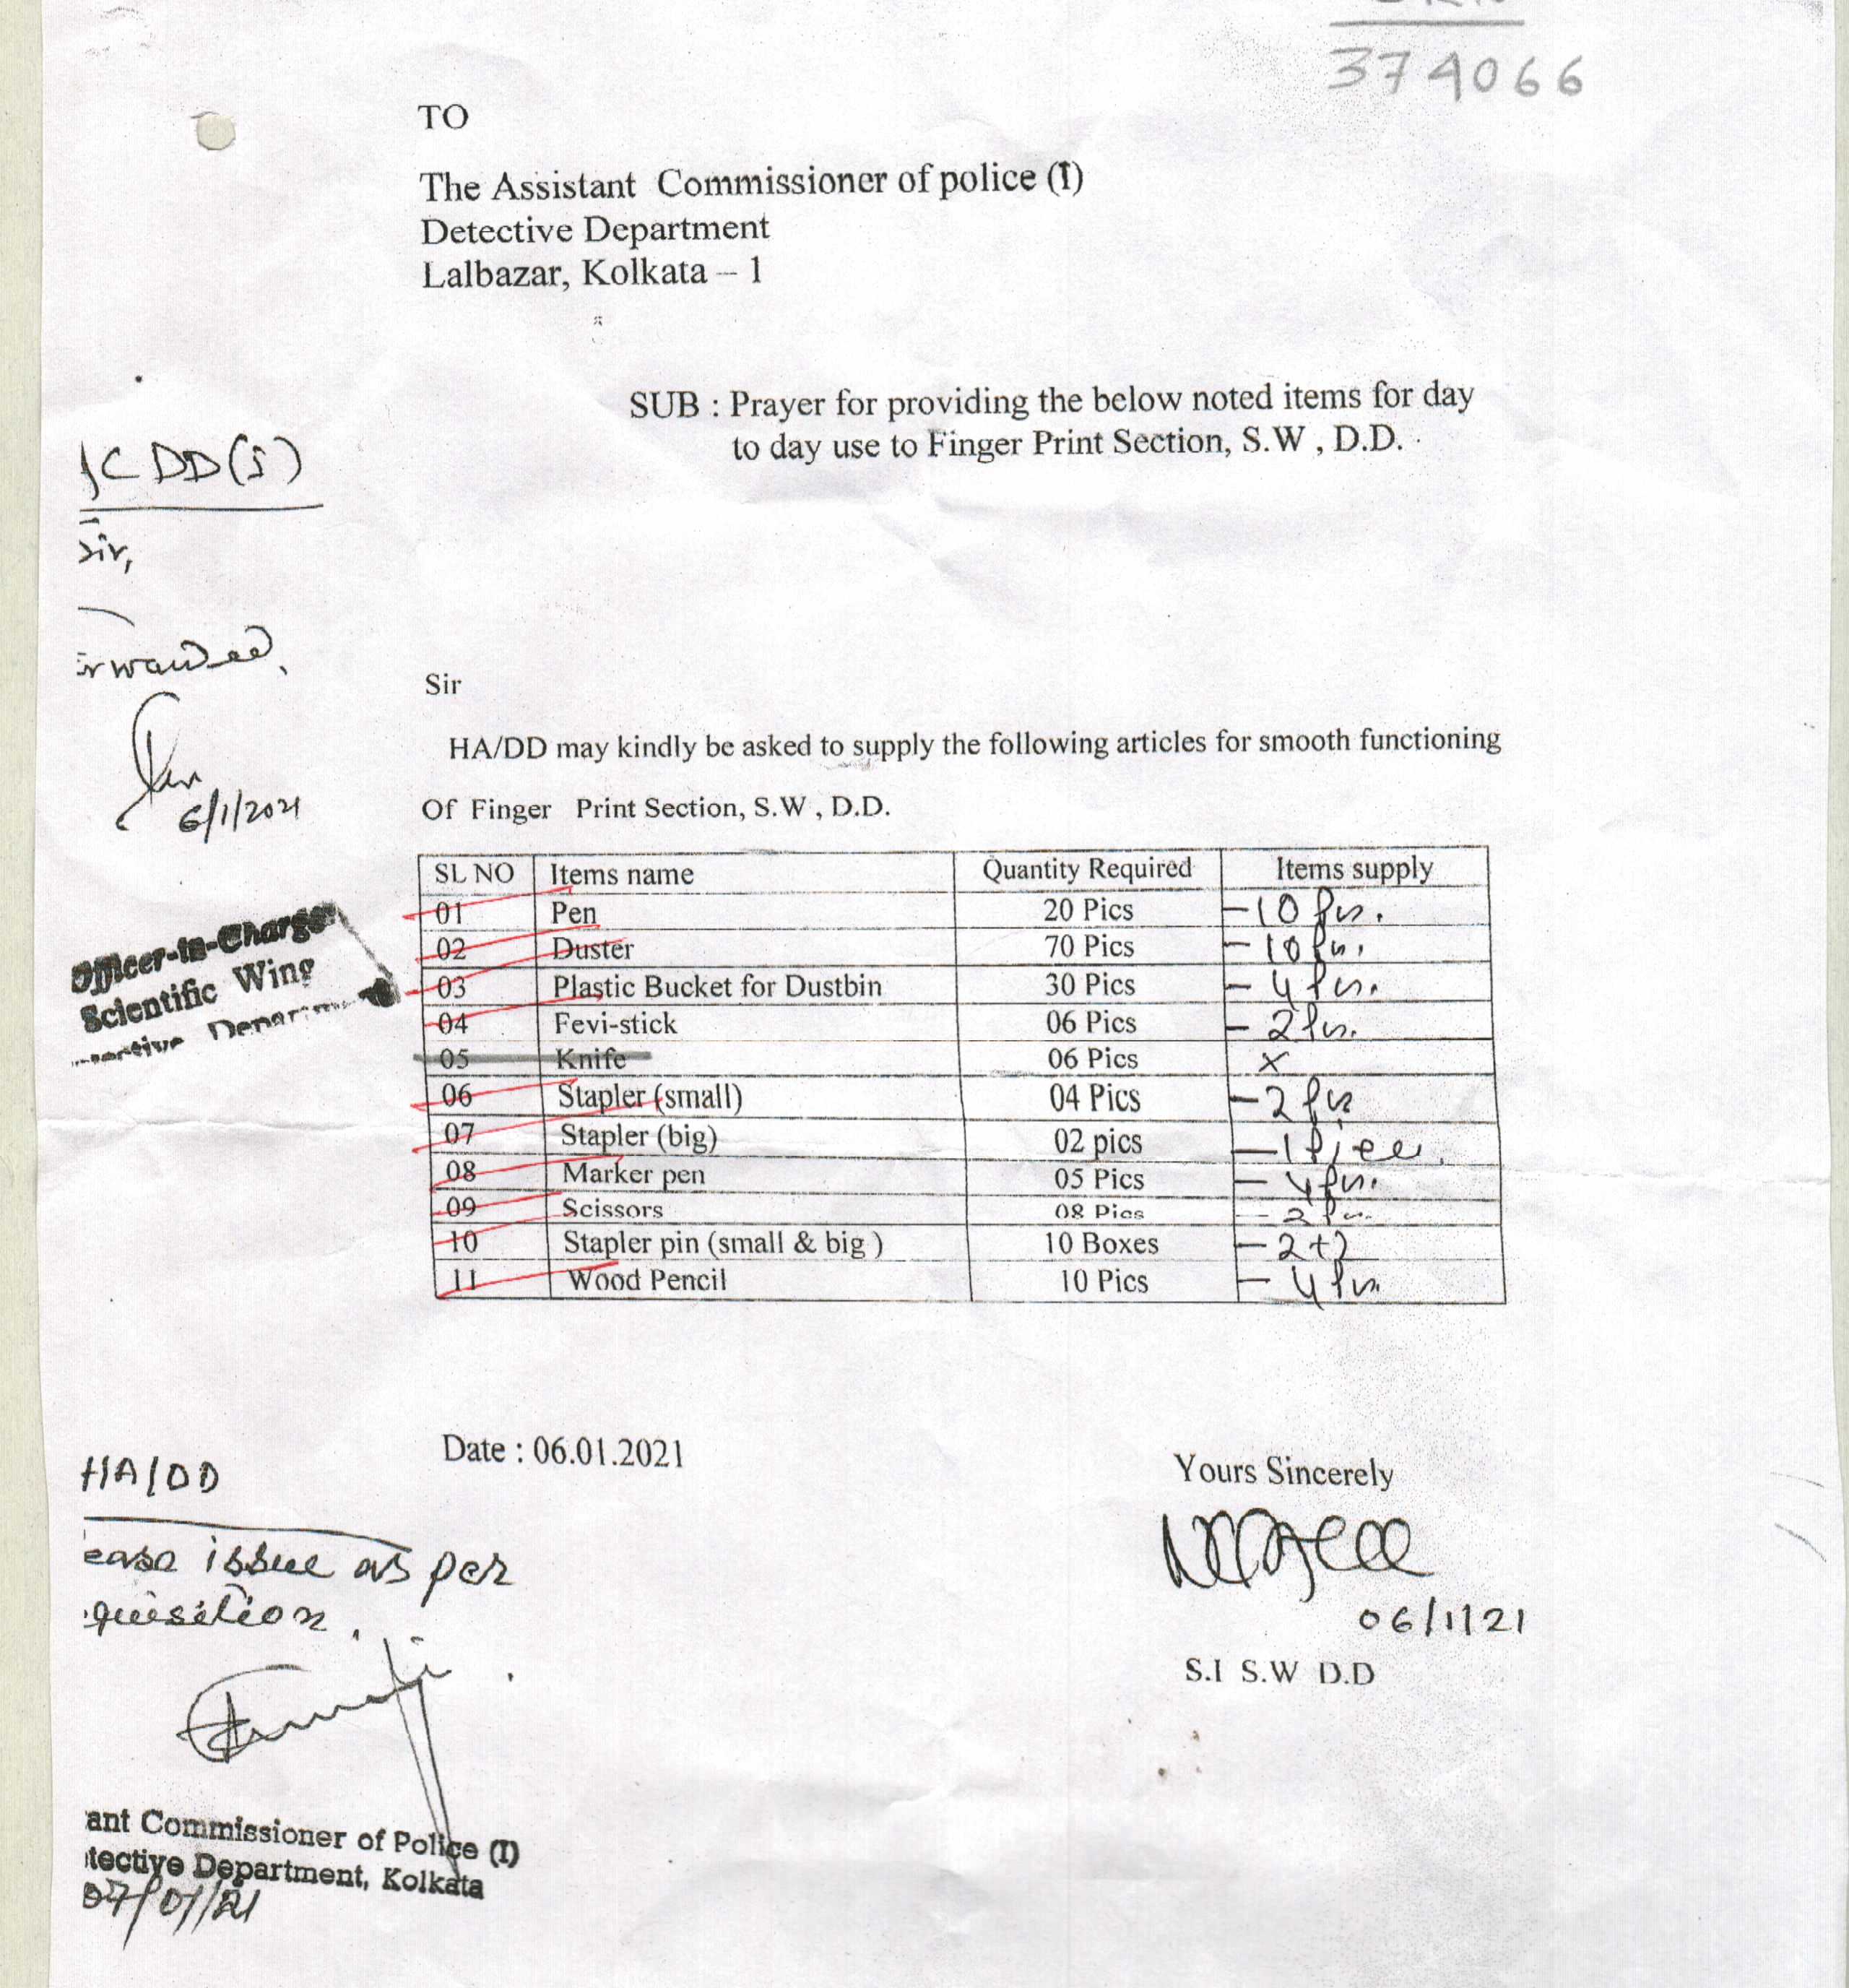 374066
TO
The Assistant Commissioner of police (I)
Detective Department
Lalbazar, Kolkata – 1
SUB : Prayer for providing the below noted items for day
to day use to Finger Print Section, S.W , D.D.
C DD(S)
Sir,
rwarded,
6/1/2021
Officer-in-Charge
Scientific Wing
Sir
HA/DD may kindly be asked to supply the following articles for smooth functioning
Of Finger Print Section, S.W , D.D.
SL NO Items name Quantity Required Items supply
01 Pen 20 Pics – 10 Pcs.
02 Duster 70 Pics – 10 Pcs.
03 Plastic Bucket for Dustbin 30 Pics – 4 Pcs.
04 Fevi-stick 06 Pics – 2 Pcs.
05 Knife 06 Pics ×
06 Stapler (small) 04 Pics – 2 Pcs
07 Stapler (big) 02 pics – 1 Piece.
08 Marker pen 05 Pics – 4 Pcs.
09 Scissors 08 Pics – 2 Pcs.
10 Stapler pin (small & big ) 10 Boxes – 2+2
11 Wood Pencil 10 Pics – 4 Pcs.
Date : 06.01.2021
Yours Sincerely
06/1/21
S.I S.W D.D
HA/DD
ease issue as per
quisition.
ant Commissioner of Police (I)
tective Department, Kolkata
07/01/21